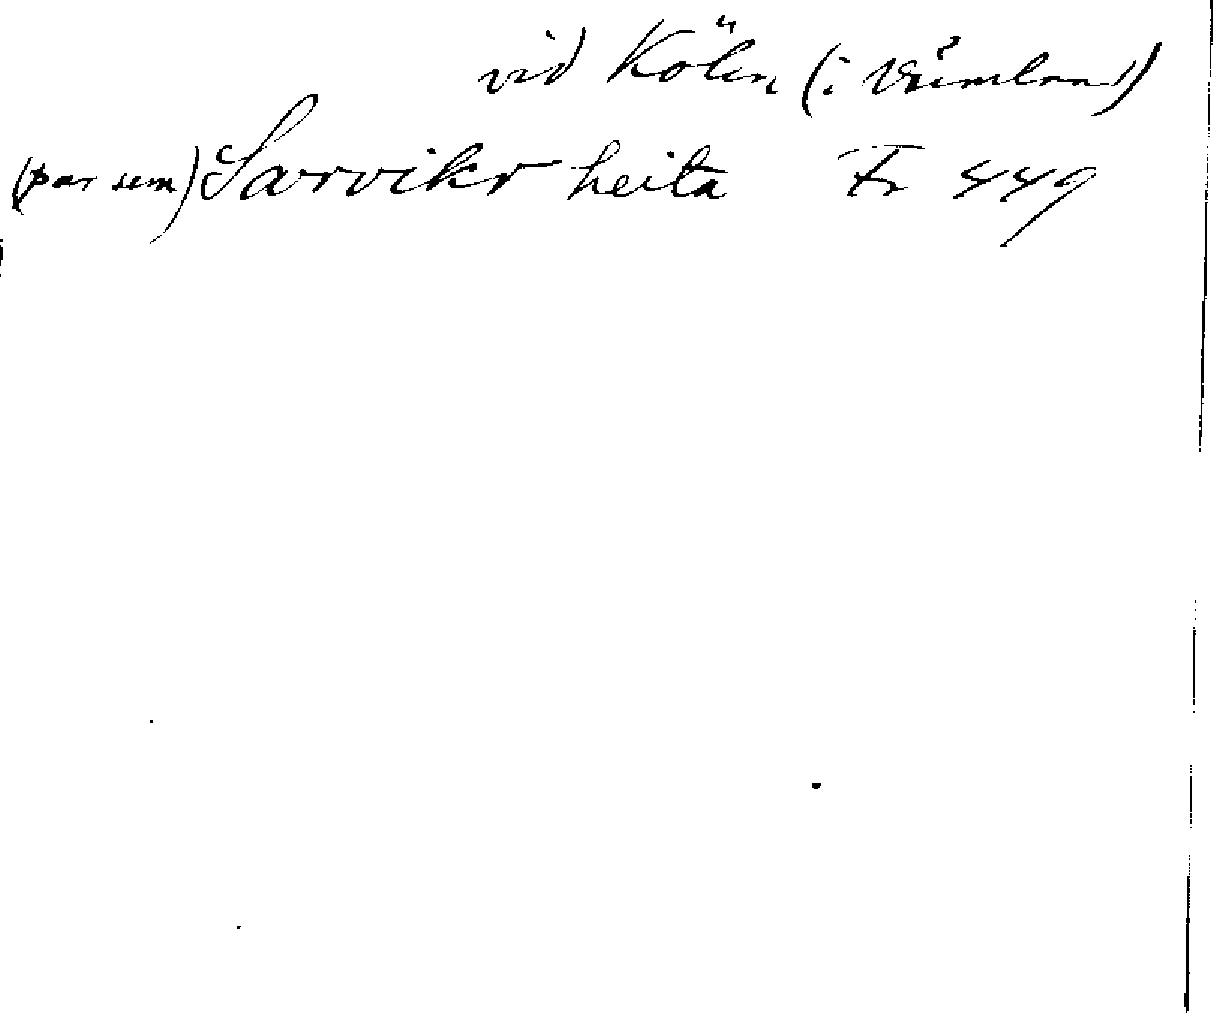 vid Kölen (i Värmland)
(þar sem) Sarvikr heita Fr 449